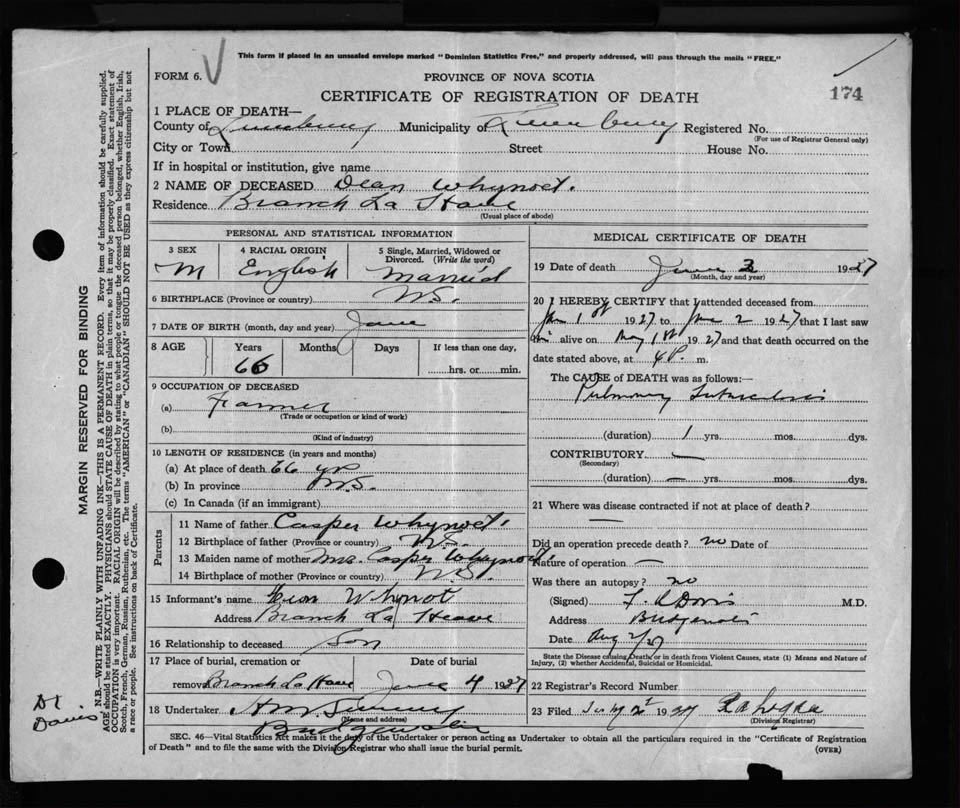 This form if placed in an unsealed envelope marked "Dominion Statistics Free," and properly addressed, will pass through the mails "FREE."
FORM 6.
PROVINCE OF NOVA SCOTIA
CERTIFICATE OF REGISTRATION OF DEATH
174
1 PLACE OF DEATH—
County of Lunenburg Municipality of Lunenburg Registered No.
(For use of Registrar General only)
City or Town Street House No.
If in hospital or institution, give name
2 NAME OF DECEASED Dean Whynot.
Residence Branch La Have
(Usual place of abode)
PERSONAL AND STATISTICAL INFORMATION
3 SEX 4 RACIAL ORIGIN 5 Single, Married, Widowed or Divorced. (Write the word)
M English Married
6 BIRTHPLACE (Province or country) N.S.
7 DATE OF BIRTH (month, day and year)
8 AGE Years Months Days If less than one day,
66 hrs. or min.
9 OCCUPATION OF DECEASED
(a) Farmer
(Trade or occupation or kind of work)
(b)
(Kind of industry)
10 LENGTH OF RESIDENCE (in years and months)
(a) At place of death 66 yr
(b) In province N.S.
(c) In Canada (if an immigrant)
Parents
11 Name of father Casper Whynot.
12 Birthplace of father (Province or country) N.S.
13 Maiden name of mother Mrs. Casper Whynot
14 Birthplace of mother (Province or country) N.S.
15 Informant's name Whynot
Address Branch La Heave
16 Relationship to deceased Son
17 Place of burial, cremation or removal Branch La Have
Date of burial June 4 1927
18 Undertaker
(Name and address)
Bridgewater
MEDICAL CERTIFICATE OF DEATH
19 Date of death June 3 1927
(Month, day and year)
20 I HEREBY CERTIFY that I attended deceased from
1st 1927 to June 2 1927 that I last saw
him alive on May 1st 1927 and that death occurred on the
date stated above, at 4 P. m.
The CAUSE of DEATH was as follows:—
Pulmonary Tuberculosis
(duration) 1 yrs. mos. dys.
CONTRIBUTORY —
(Secondary)
(duration) — yrs. mos. dys.
21 Where was disease contracted if not at place of death?
—
Did an operation precede death? no Date of
Nature of operation —
Was there an autopsy? no
(Signed) Davis M.D.
Address Bridgewater
Date Aug 2/27
State the Disease causing Death, or in death from Violent Causes, state (1) Means and Nature of Injury, (2) whether Accidental, Suicidal or Homicidal.
22 Registrar's Record Number
23 Filed 1927
(Division Registrar)
SEC. 46—Vital Statistics Act makes it the duty of the Undertaker or person acting as Undertaker to obtain all the particulars required in the "Certificate of Registration
of Death" and to file the same with the Division Registrar who shall issue the burial permit.
(OVER)
MARGIN RESERVED FOR BINDING
N.B.—WRITE PLAINLY WITH UNFADING INK—THIS IS A PERMANENT RECORD. Every item of information should be carefully supplied.
AGE should be stated EXACTLY. PHYSICIANS should STATE CAUSE OF DEATH in plain terms, so that it may be properly classified. Exact statement of
OCCUPATION is very important. RACIAL ORIGIN will be described by stating to what people or tongue the deceased person belonged, whether English, Irish,
Scotch, French, German, Russian, Ruthenian, etc. The terms "AMERICAN" or "CANADIAN" SHOULD NOT BE USED as they express citizenship but not
a race or people. See instructions on back of Certificate.
Dr
Davis